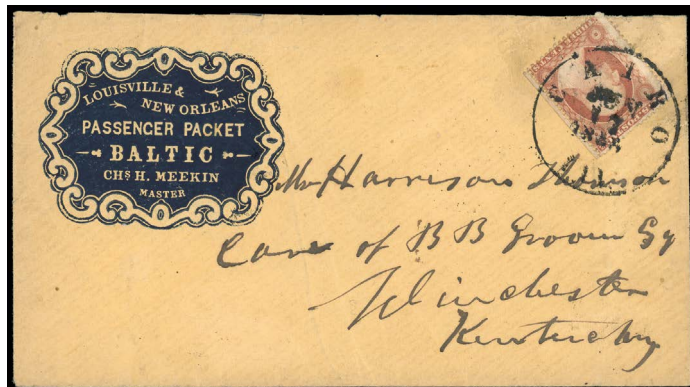 LOUISVILLE &
NEW ORLEANS
PASSENGER PACKET
BALTIC
CHS H. MEEKIN
MASTER
CAIRO
Ill
Mr Harrison
Care of B B Groom Esq
Winchester
Kentucky